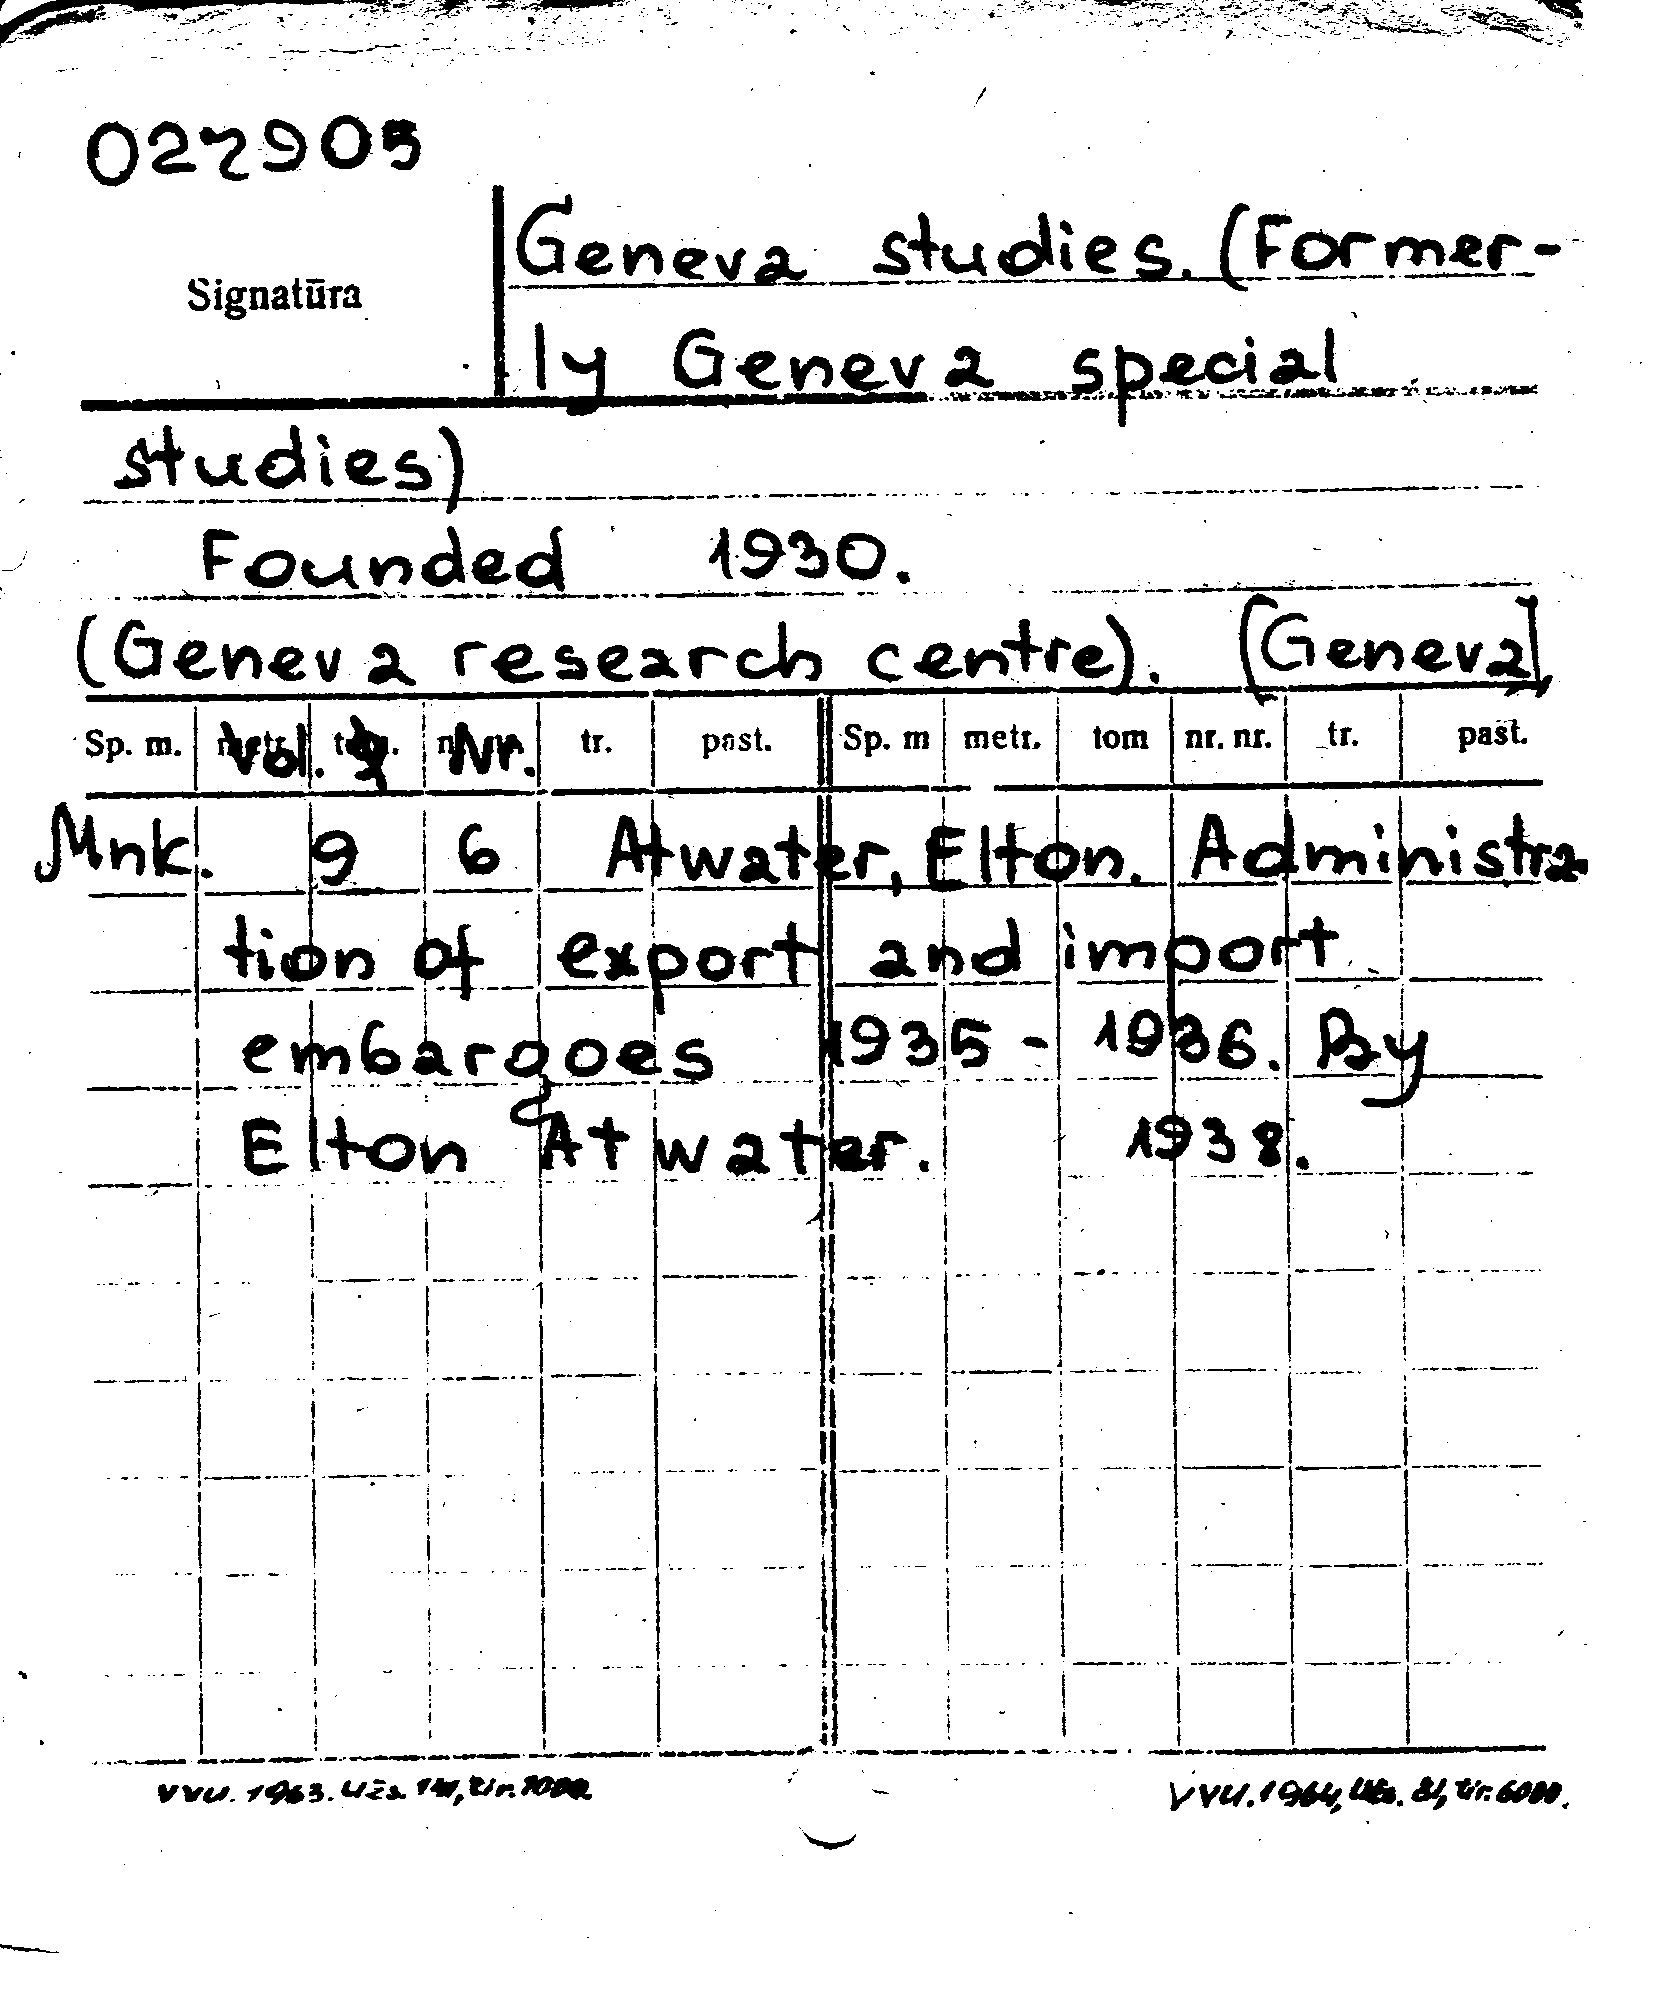 027905
Geneva studies. (Former-
Signatūra
ly Geneva special
studies)
Founded 1930.
(Geneva research centre). [Geneva],
Sp. m. Vol. Nr. tr. past. Sp. m metr. tom nr. nr. tr. past.
Mnk. 9 6 Atwater, Elton. Administra-
tion of export and import
embargoes 1935 - 1936. By
Elton Atwater. 1938.
VVU. 1963. Užs. tir. VVU. 1964, Užs. 81, tir. 6000.